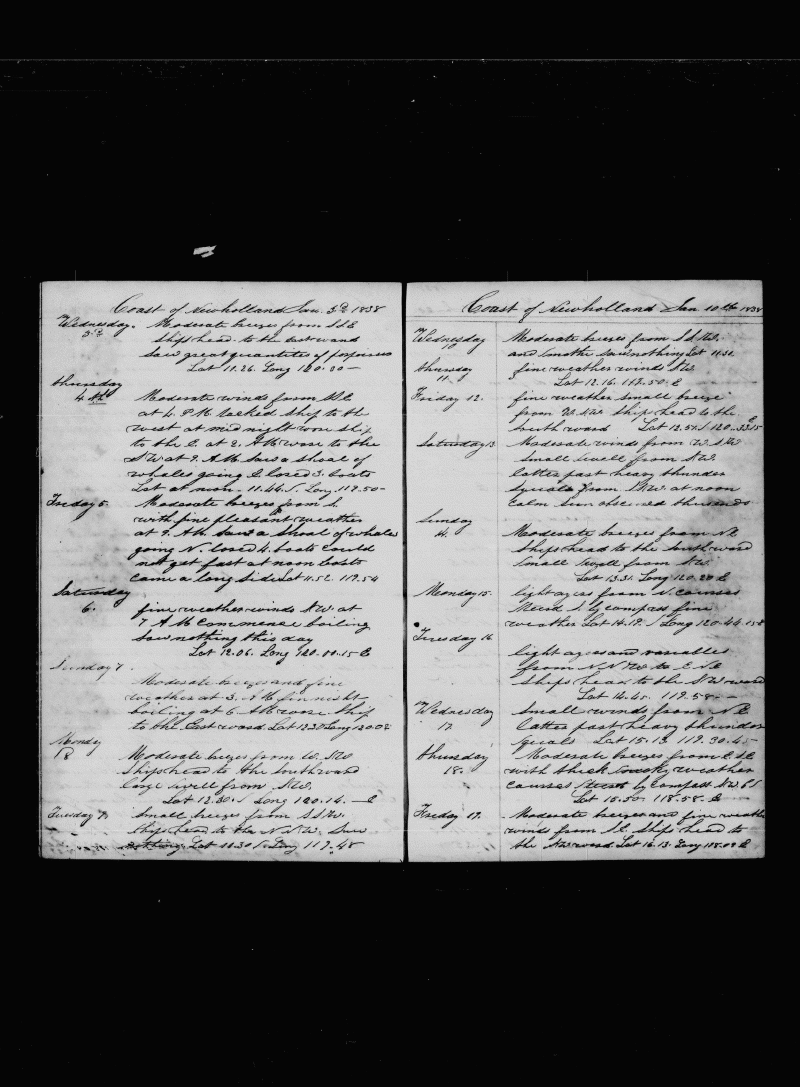 Coast of Newholland Jan. 3rd 1838
Wednesday. Moderate breezes from SSE
3rd Ship head to the westward
Saw great quantities of porpoises
Lat 11.26. Long 120.20 —
thursday
4th Moderate winds from
at 4. P M tacked ship to the
west at mid night wore ship
to the E. at 2. A M wore to the
SW at 9. A M Saw a Shoal of
whales going E. lowed 3. boats
Lat at noon. 11.44. S. Long. 119.50 —
Friday 5. Moderate breezes from S.
with fine pleasant weather
at 9. A M. Saw a Shoal of whales
going N. lowed 4. boats could
not get fast at noon boats
came a long side Lat 11.52. 119.54
Saturday
6. fine weather winds SW. at
7 A M Commence boiling
Saw nothing this day
Lat 12.06. Long 120.00.15 E
Sunday 7.
Moderate breezes and fine
weather at 3. P M finisht
boiling at 6 A M wore Ship
to the Eastward. Lat 12.30 Long 120.02
Monday
8 Moderate breezes from W. SW
Ships head to the Southward
large swell from SW.
Lat 12.30. S Long 120.14. — E
Tuesday 9. Small breezes from SSW.
Ship head to the Saw
nothing Lat S Long 119.48
Coast of Newholland Jan 10th 1838
Wednesday Moderate breezes from SSW.
10 and smooth saw nothing Lat
thursday fine weather winds SW
11. Lat 12.16. 119.50. E
Friday 12. fine weather Small breeze
from Ship head to the
Southward Lat 12.51. S 120..33.15 E
Saturday 13. Moderate winds from W. SW
Small Swell from SW.
latter part heavy thunder
Squals from SW. at noon
Calm Sun obscured
Sunday
14. Moderate breezes from NE
Ships head to the Southward
Small Swell from SW.
Lat 13.31. Long 120.20 E
Monday 15. light ayres from N. Courses
Steerd S. by compass fine
weather Lat 14.19. S Long 120.44.15 E
Tuesday 16
light ayres and variables
from N. N W to E. N. E
Ships head to the SW ward
Lat 14.45. 119.58. —
Wednesday Small winds from NE
17. latter part heavy thunder
squals Lat 15.13. 119.30.45
thursday Moderate breezes from E. SE
18. with thick smoky weather
Courses Steerd by Compass SW by S
Lat 15.50. 118.58. E
Friday 19. Moderate breezes and fine weather
winds from SE. Ships head to
the SW ward. Lat 16.13. Long 118.08 E